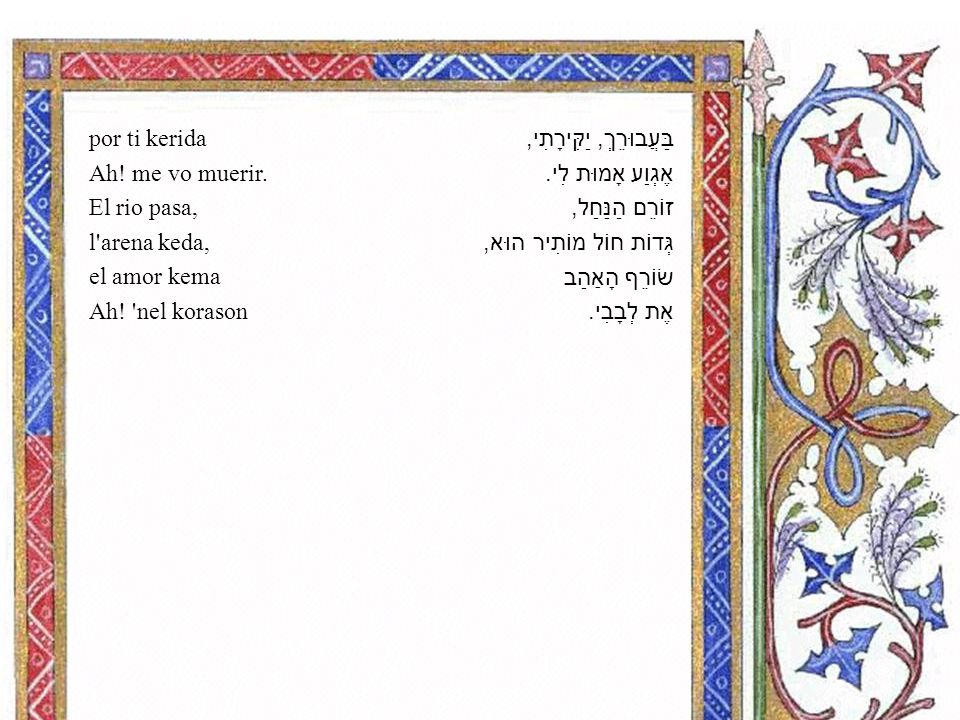 por ti kerida
Ah! me vo muerir.
El rio pasa,
l'arena keda,
el amor kema
Ah! 'nel korason
בַּעֲבוּרֵךְ, יַקִּירָתִי,
אֶגְוַע אָמוּת לִי.
זוֹרֵם הַנַּחַל,
גְּדוֹת חוֹל מוֹתִיר הוּא,
שׂוֹרֵף הָאַהַב
אֶת לְבָבִי.